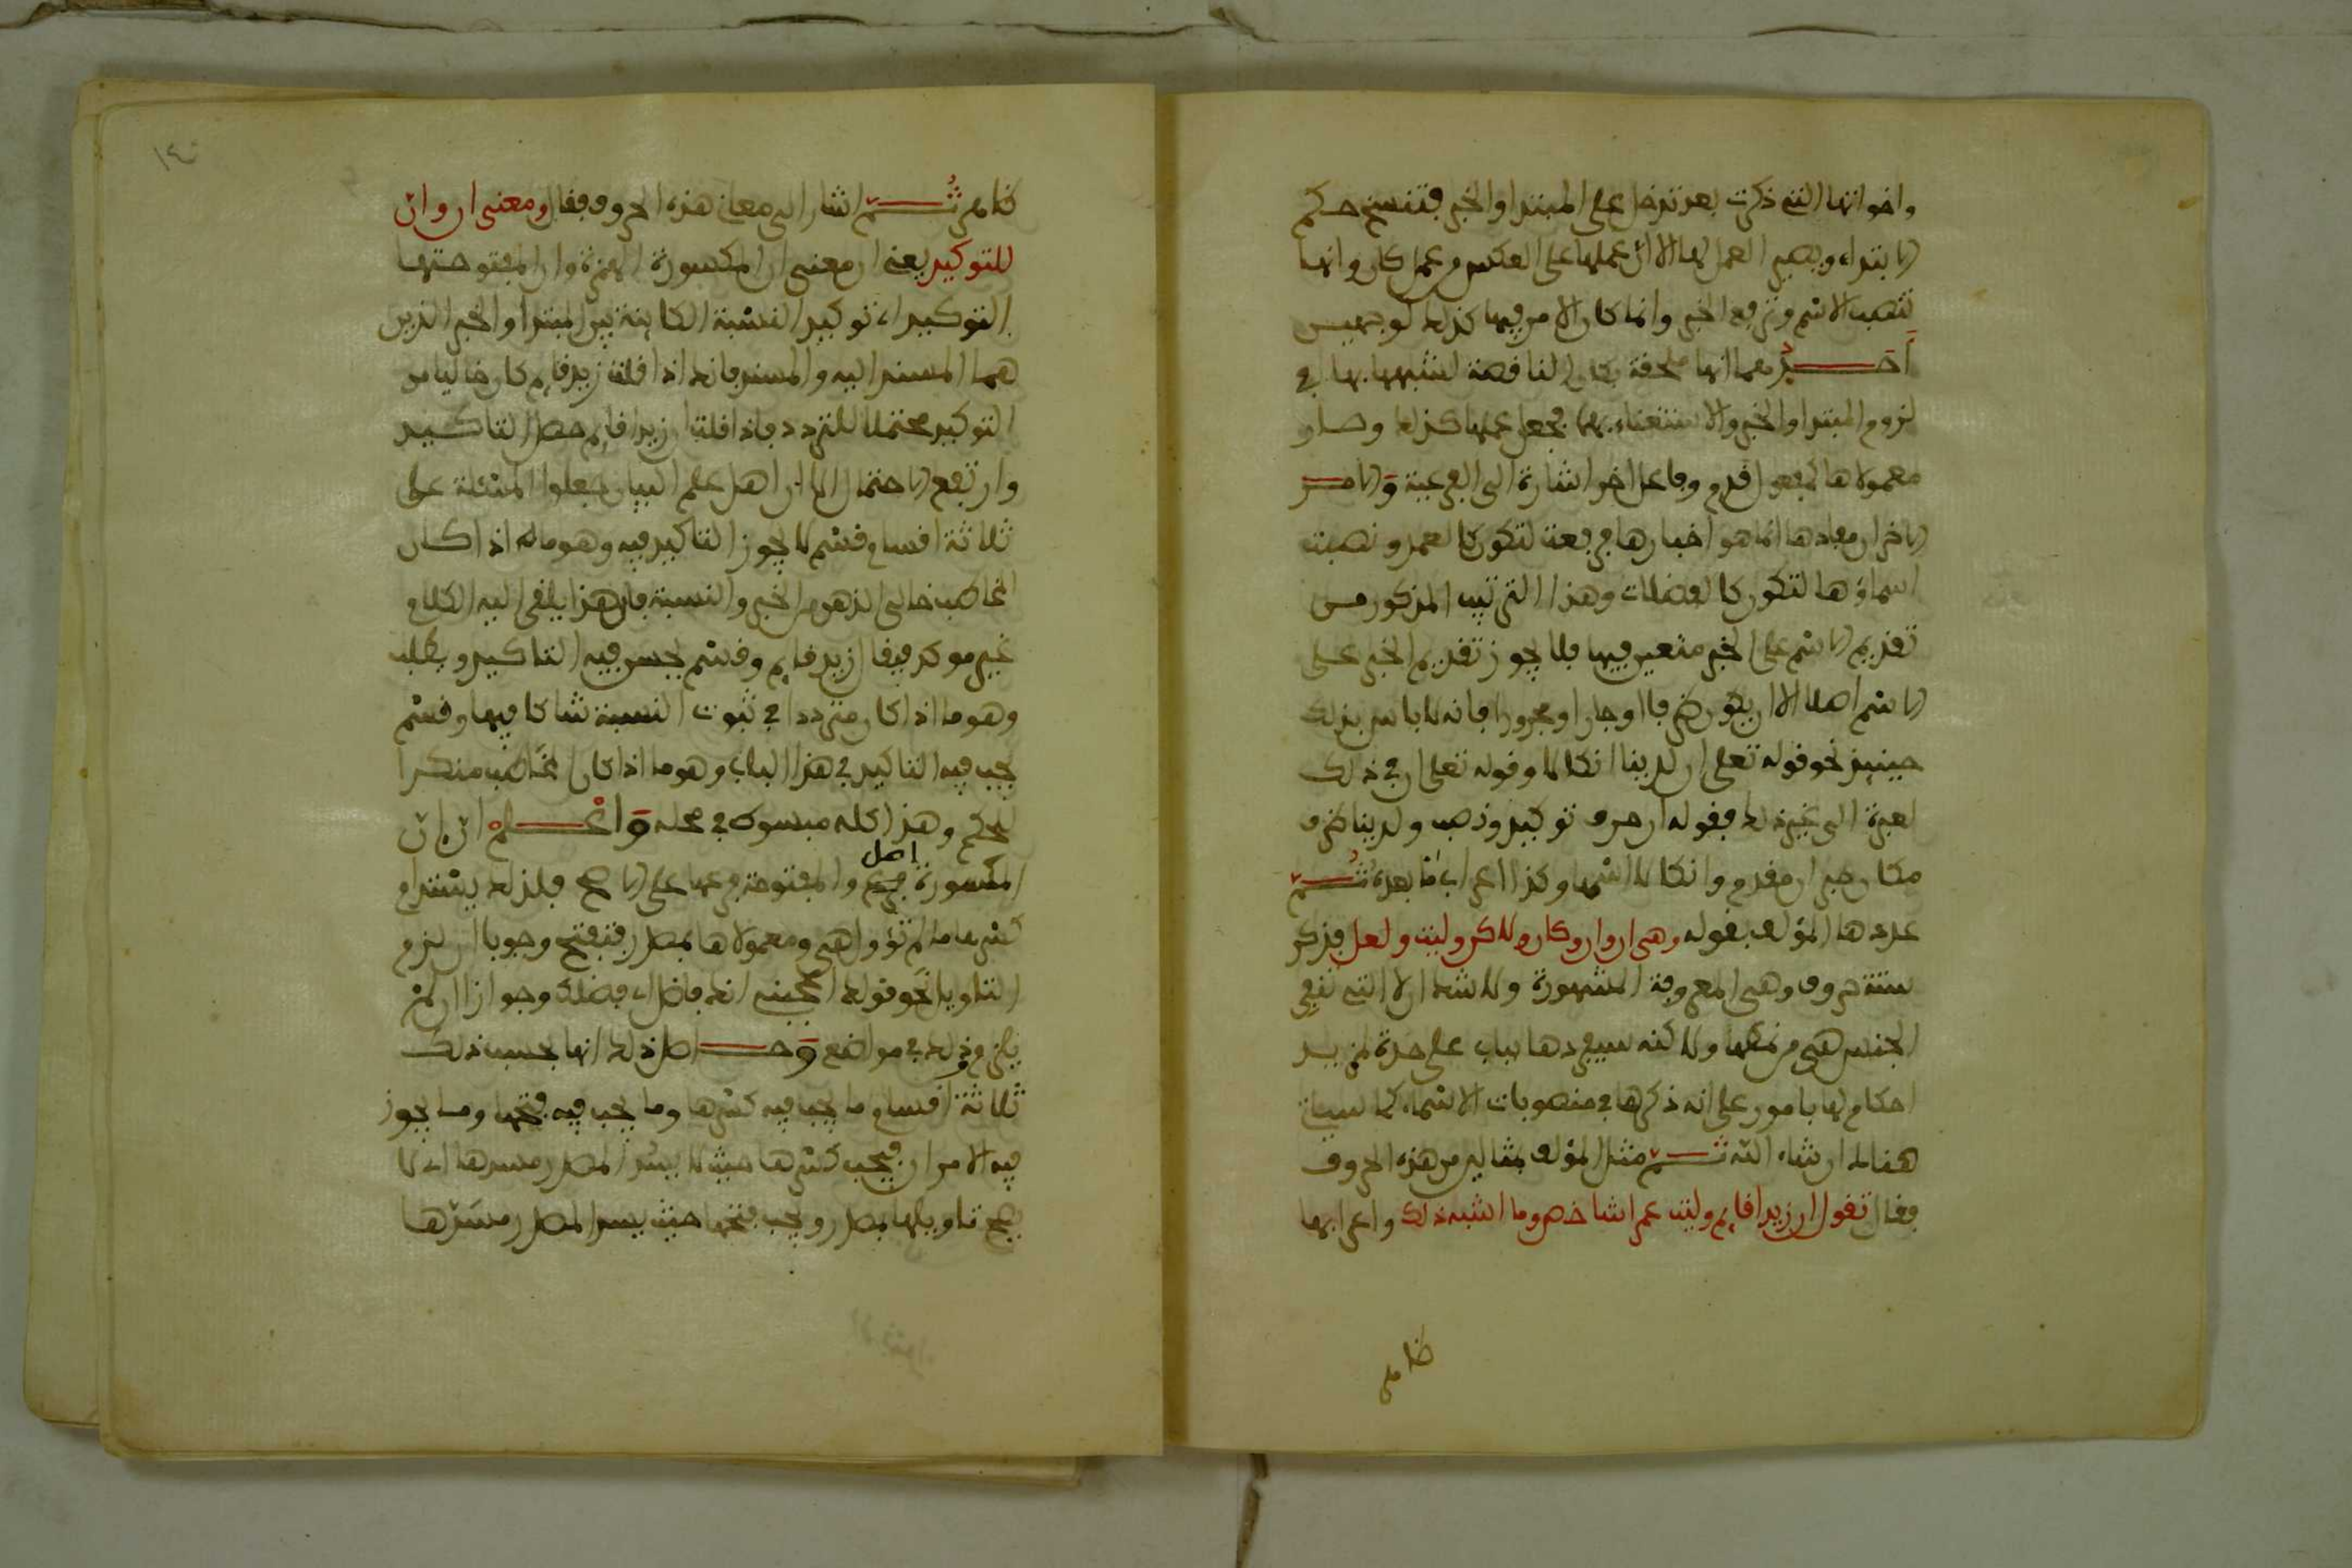 واخواتها التي ذكرت بعد تدخل على المبتدا والخبر فتنسخ حكم
الابتداء ويصير العمل لها الا ان عملها على العكس من عمل كان وانها
تنصب الاسم وترفع الخبر وانما كان الامر فيها كذلك لوجهيـن
احـــدهما انها ملحقة بكان الناقصة لشبهها بها في
لزوم المبتدا والخبر والاستغناء بهما فجعل عملها كذلك وصار
معمولاها كمفعول قدم وفاعل اخر اشارة الى الفرعية والامـر
الاخر ان معادها انما هو اخبارها فرفعت لتكون كالعمد ونصبت
اسماؤها لتكون كالفضلات وهذا الترتيب المذكور مـن
تقديم الاسم على الخبر متعين فيها فلا يجوز تقديم الخبر علـى
الاسم اصلا الا ان يكون ظرفا او جارا ومجرورا فانه لا باس بذلك
حينيذ نحو قوله تعلى ان لدينا انكالا وقوله تعلى ان في ذلك
لعبرة الى غير ذلك فقوله ان حرف توكيد ونصب ولدينا ظرف
مكان خبر ان مقدم وانكالا اسمها وكذا اعراب ما بعده ثـــم
عددها المؤلف بقوله وهي ان وان وكان ولاكن وليت ولعل فذكر
ستة حروف وهي المعروفة المشهورة ولا شك ان لا التي لنفي
الجنس هي من نمطها ولاكنه سيفردها بباب على حدة لمزيـد
احكام لها بامور على انه ذكرها في منصوبات الاسماء كما سياتي
هنالك ان شاء الله ثـــم مثل المؤلف بمثالين من هذه الحروف
فقال تقول ان زيدا قايم وليت عمرا شاخص وما اشبه ذلك واعرابها
ظاهر
ظاهر ثـــم اشار الى معاني هذه الحروف فقال ومعنى ان وان
للتوكيد يعني ان معنى ان المكسورة الهمزة وان المفتوحتها
التوكيد اي توكيد النسبة الكاينة بين المبتدا والخبر الذين
هما المسند اليه والمسند فانك اذا قلت زيد قايم كان خاليا من
التوكيد محتملا للتردد فاذا قلت ان زيدا قايم حصل التاكـيـد
وارتفع الاحتمال الا ان اهل علم البيان جعلوا المسئلة على
ثلاثة اقسام قسم لا يجوز التاكيد فيه وهو ما اذا كـان
المخاطب خالي الذهن من الخبر والنسبة فان هذا يلقى اليه الكلام
غير موكد فيقال زيد قايم وقسم يحسن فيه التاكيد ويطلب
وهو ما اذا كان مترددا في ثبوت النسبة شاكا فيها وقسم
يجب فيه التاكيد في هذا الباب وهو ما اذا كان المخاطب منكرا
للحكم وهذا كله مبسوط في محله واعـــلم ان ان
المكسورة اصل والمفتوحة فرعها على الاصح فلذلك يستدام
كسرها ما لم تؤول هي ومعمولاها بمصدر فتفتح وجوبا ان لزم
التاويل نحو قولك اعجبني انك فاضل اي فضلك وجوازا ان لم
يلزم وذلك في مواضع وحـــاصل ذلك انها بحسب ذلك
ثلاثة اقسام ما يجب فيه كسرها وما يجب فيه فتحها وما يجوز
فيه الامران فيجب كسرها حيث لا يسد المصدر مسدها اي لا
يصح تاويلها بمصدر ويجب فتحها حيث يسد المصدر مسدها